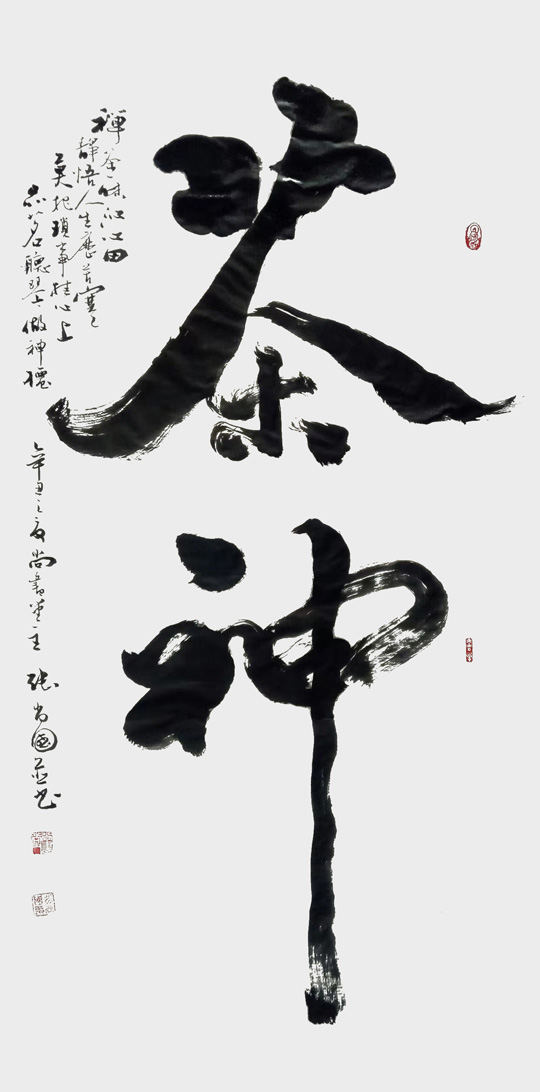 茶神
禪茶一味沁心田
靜悟人生歷苦寒
莫把瑣事挂心上
品茗聽琴做神僊
辛丑之夏尚書堂主張尚國並書